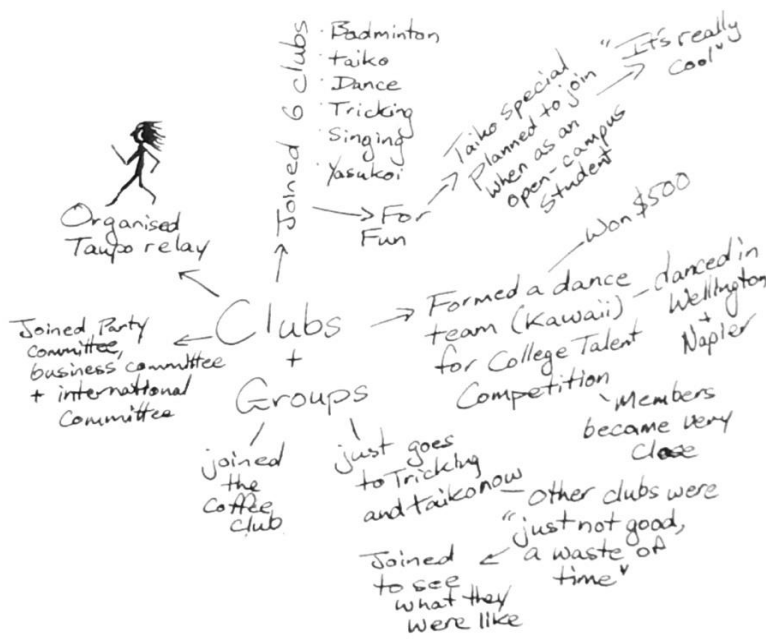 Joined 6 clubs
· Badminton
· taiko
· Dance
· Tricking
· Singing
· Yasukoi
For
Fun
Taiko special
Planned to join
when as an
open-campus
student
"It's really
cool"
Organised
Taupo relay
Clubs
+
Groups
Joined Party
committee,
business committee
+ international
Committee
Formed a dance
team (Kawaii)
for College Talent
Competition
Won $500
danced in
Wellington
+
Napier
Members
became very
close
joined
the
Coffee
Club
just goes
to Tricking
and taiko now
Other clubs were
"just not good,
a waste of
time"
Joined
to see
what they
were like